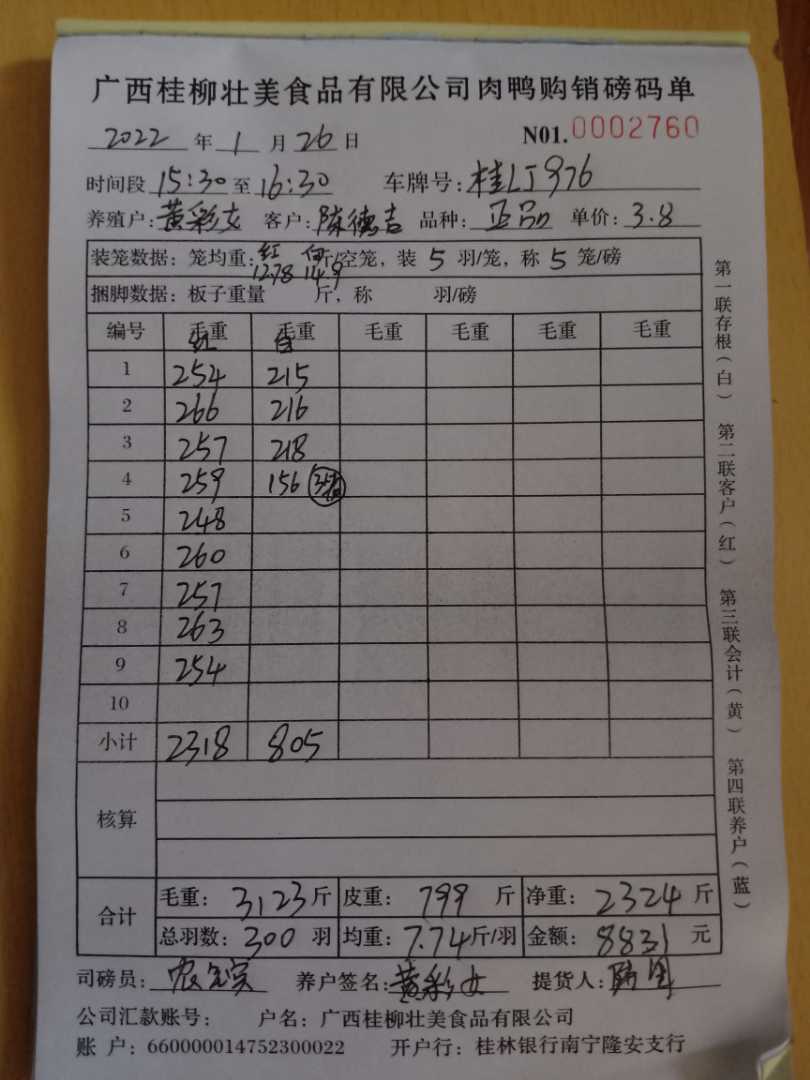 广西桂柳壮美食品有限公司肉鸭购销磅码单
2022 年 1 月 26 日 N01.0002760
时间段 15:30 至 16:30 车牌号: 桂LJ976
养殖户: 黄彩女 客户: 陈德吉 品种: 正品 单价: 3.8
装笼数据: 笼均重: 红 12.78 白 14.9 斤/空笼, 装 5 羽/笼, 称 5 笼/磅
捆脚数据: 板子重量 斤, 称 羽/磅
编号 毛重 毛重 毛重 毛重 毛重 毛重
红 白
1 254 215
2 266 216
3 257 218
4 259 156
5 248
6 260
7 257
8 263
9 254
10
小计 2318 805
核算
合计 毛重: 3123 斤 皮重: 799 斤 净重: 2324 斤
总羽数: 300 羽 均重: 7.74 斤/羽 金额: 8831 元
司磅员: 养户签名: 黄彩女 提货人:
公司汇款账号: 户名: 广西桂柳壮美食品有限公司
账 户: 660000014752300022 开户行: 桂林银行南宁隆安支行
第一联存根(白) 第二联客户(红) 第三联会计(黄) 第四联养户(蓝)